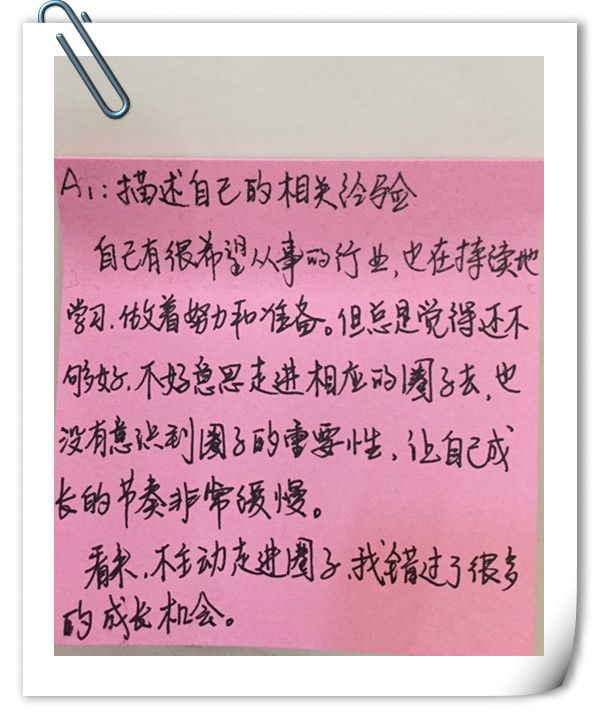 A1:描述自己的相关经验
自己有很希望从事的行业,也在持续地
学习,做着努力和准备。但总是觉得还不
够好,不好意思走进相应的圈子去,也
没有意识到圈子的重要性,让自己成
长的节奏非常缓慢。
看来,不主动走进圈子,我错过了很多
的成长机会。